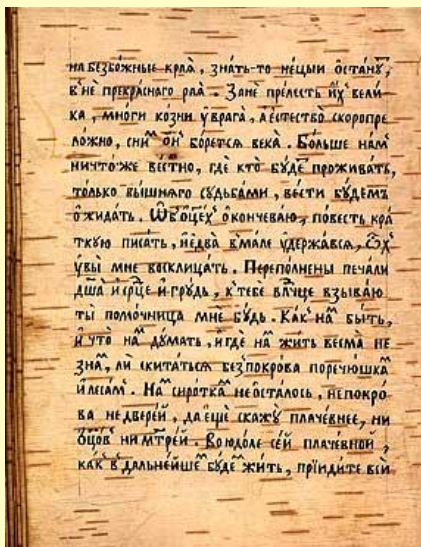 на безбо́жные края̀, зна́ть-то не́цыи ѻ҆ста́нꙋ,
в̾не прекра́снаго рая̀. Занѐ пре́лесть и҆́х̾ вели
ка, мно́ги ко́зни ᲂу҆ врага̀, а є҆стество̀ скоропре
ло́жно, с ни́м ѻ҆́н̾ бо́рется века̀. Бо́льше на́м̾
ничто́же ве́стно, гдѐ кто̀ бꙋ́де прожива́ть,
то́лько вы́шняго сꙋдьба́ми, ве́сти бꙋ́демъ
ѻ҆жида́ть. Ѡ҆б̾ ѻ҆ц҃ех̾ ѻ҆кончева́ю, по́весть кра́
ткꙋю писа́ть, и҆ є҆два̀ вма́ле ᲂу҆держа́вся, ѽх̾
ᲂу҆вы̀ мне восклица́ть. Перепо́лнены печа́ли
дш҃а̀ и҆ се́рⷣце и҆ грꙋ́дь, к̾ тебѐ влⷣчце взыва́ю
ты̀ помо́чница мне бꙋ́дь. Ка́к на́м бы́ть,
и҆ что̀ на́м дꙋ́мать, и҆ гдѐ на́м жи́ть весма̀ не
зна́м, лѝ скита́ться без̾ покро́ва по речю́шка
и҆ леса́м. На́м сиро́тка не ѻ҆ста́лось, не покро́
ва не двере́й, да є҆щѐ скажꙋ̀ плаче́внее, ни
ѻ҆ц҃о́в ни мт҃ре́й. Во ю҆до́ле се́й плаче́вной,
ка́к в̾ дальне́йше бꙋ́де жи́ть, прїиди́те всѝ